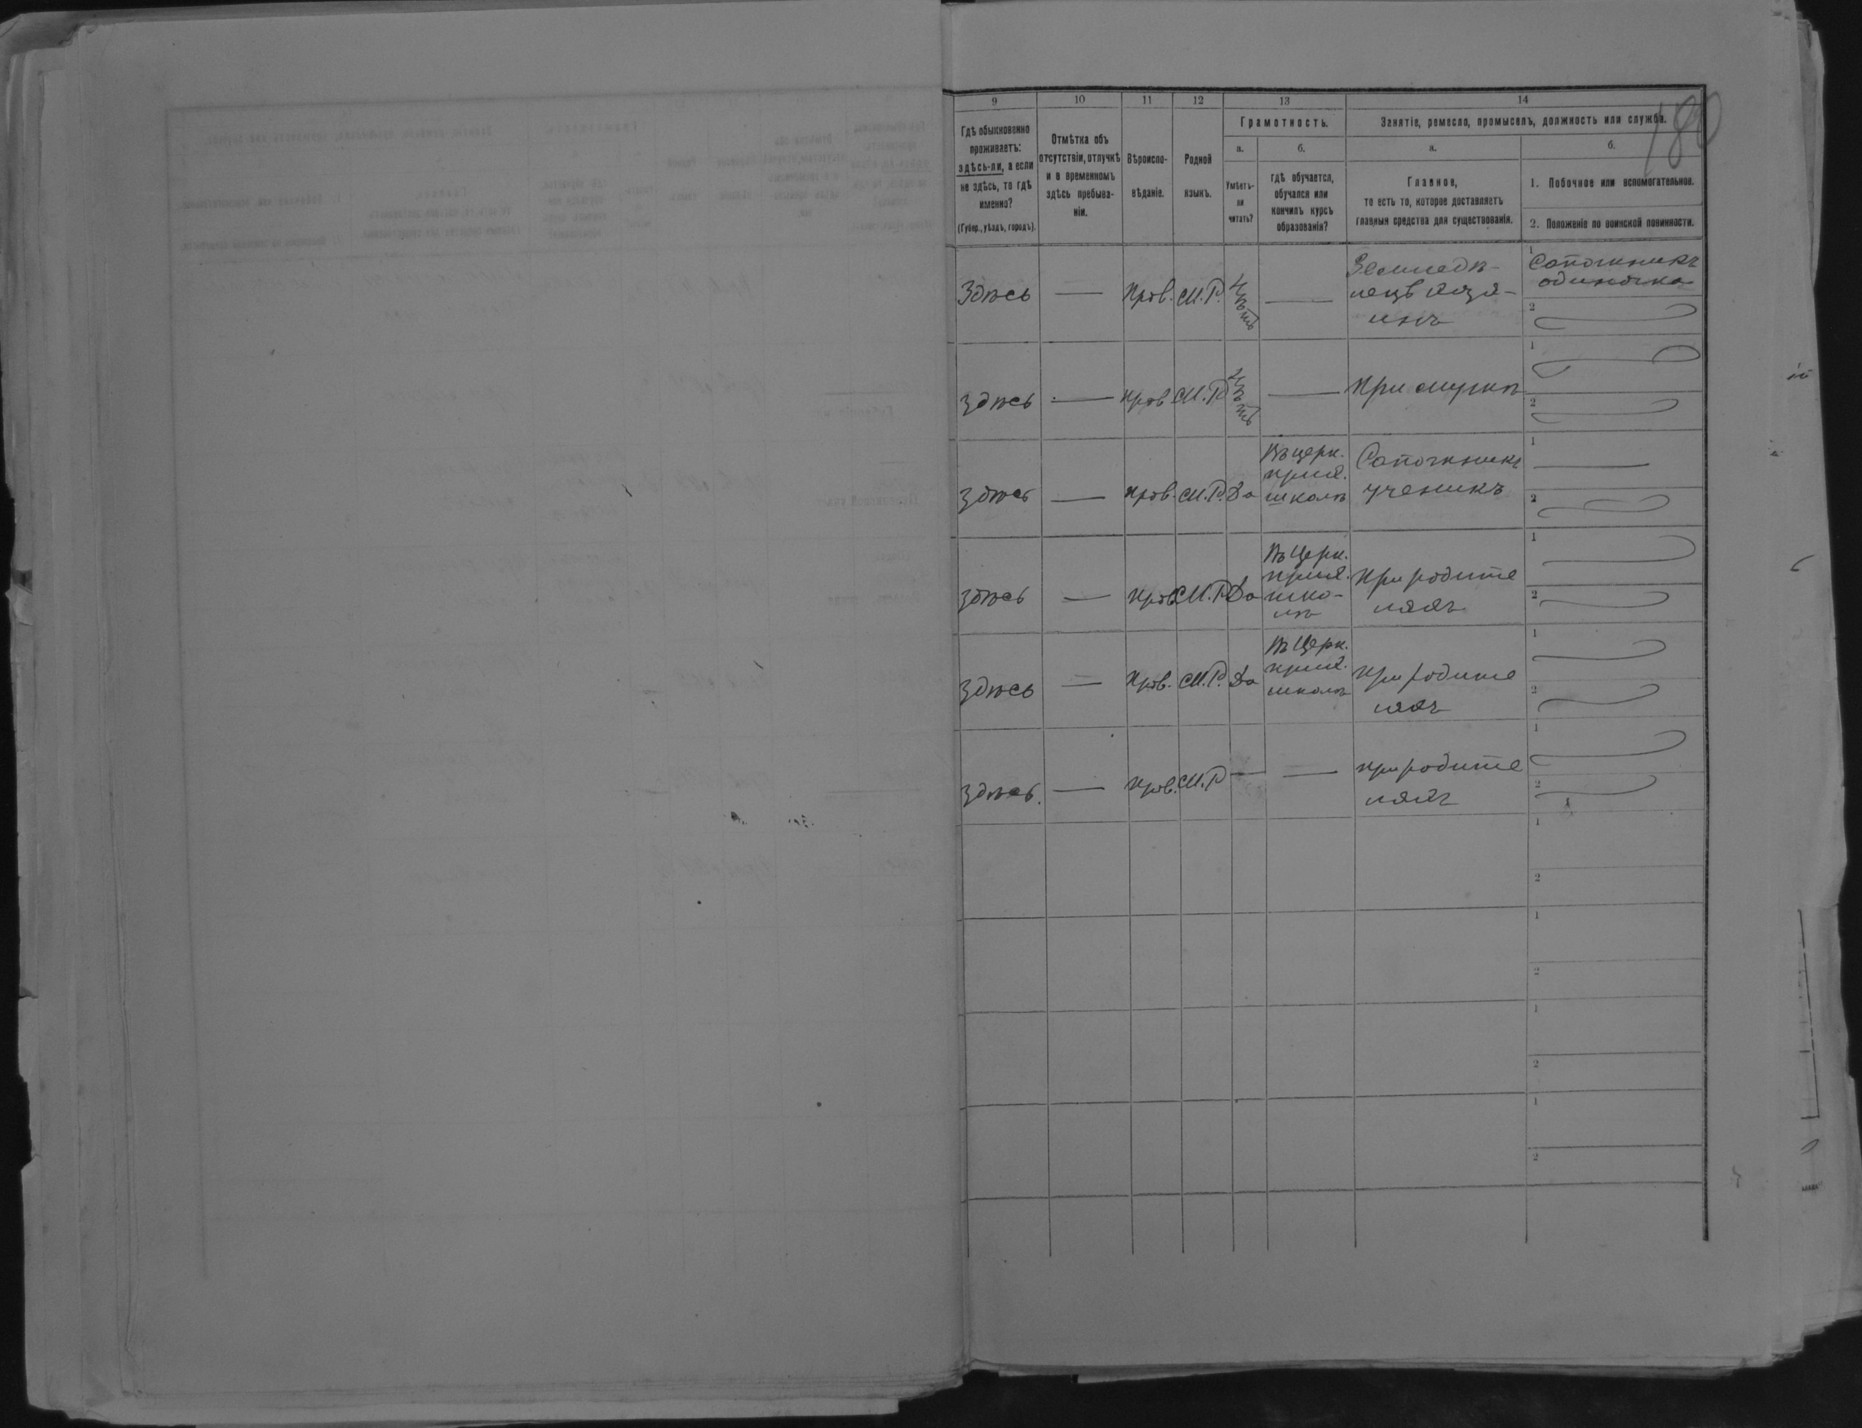 180
9 10 11 12 13 14
Гдѣ обыкновенно
проживаетъ:
здѣсь-ли, а если
не здѣсь, то гдѣ
именно?
(Губер., уѣздъ, городъ).
Отмѣтка объ
отсутствіи, отлучкѣ
и о временномъ
здѣсь пребыва-
ніи.
Вѣроиспо-
вѣданіе.
Родной
языкъ.
Грамотность.
а.
Умѣетъ-
ли
читать?
б.
гдѣ обучается,
обучался или
кончилъ курсъ
образованія?
Занятіе, ремесло, промыселъ, должность или служба.
а.
Главное,
то есть то, которое доставляетъ
главныя средства для существованія.
б.
1. Побочное или вспомогательное.
2. Положеніе по воинской повинности.
Здѣсь — Прав. М.Р. Нѣтъ —
Земледѣ-
лецъ хозя-
инъ
1
Сапожникъ
одиночка
2
здѣсь — прав М.Р. Нѣтъ — При мужѣ
1
2
здѣсь — прав. М.Р. Да
Въ церк.
прих.
школѣ
Сапожникъ
ученикъ
1
2
здѣсь — прав М.Р. Да
Въ Церк.
прих.
шко-
лѣ
При родите
ляхъ
1
2
здѣсь — прав. М.Р. Да
Въ Церк.
прих.
школѣ
при родите
ляхъ
1
2
здѣсь. — прав. М.Р — —
при родите
ляхъ
1
2
1
2
1
2
1
2
1
2